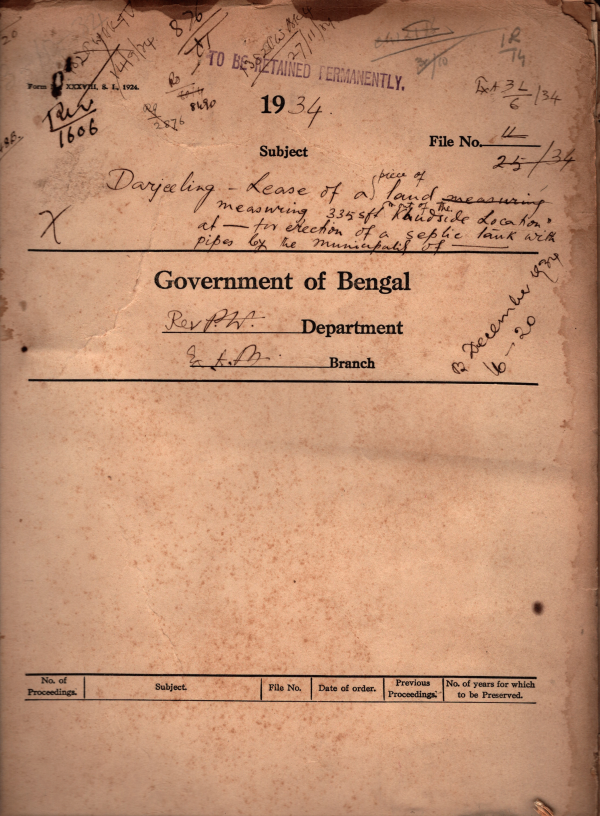 20
876
27/11/34
TO BE RETAINED PERMANENTLY.
30/10
1R
14
Form
XXXVIII, S. I., 1924.
Ro
8490
Ex A 3L/6 /34
Rev
1606
2876
1934.
File No. 11
25/34
Subject
Darjeeling - Lease of a piece of land measuring
measuring 335 sft of the "Khudside Location"
at — for erection of a septic tank with
pipes by the Municipality of —
X
Government of Bengal
Rev P.W. Department
Branch
B December 1934
16-20
No. of Proceedings.
Subject.
File No.
Date of order.
Previous Proceedings.
No. of years for which to be Preserved.